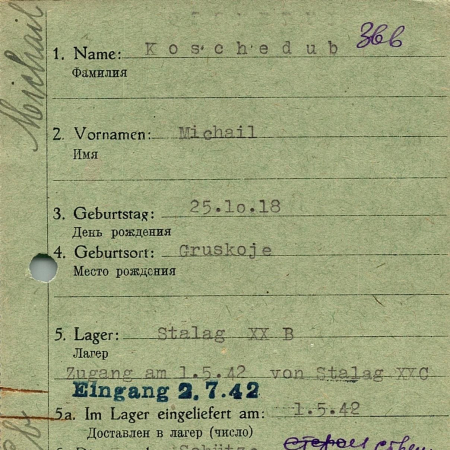 Michail
1. Name: Koschedub
Фамилия
2. Vornamen: Michail
Имя
3. Geburtstag: 25.10.18
День рождения
4. Geburtsort: Gruskoje
Место рождения
5. Lager: Stalag XX B
Лагер
Zugang am 1.5.42 von Stalag XXC
Eingang 2.7.42
5a. Im Lager eingeliefert am: 1.5.42
Доставлен в лагер (число)
Schütze